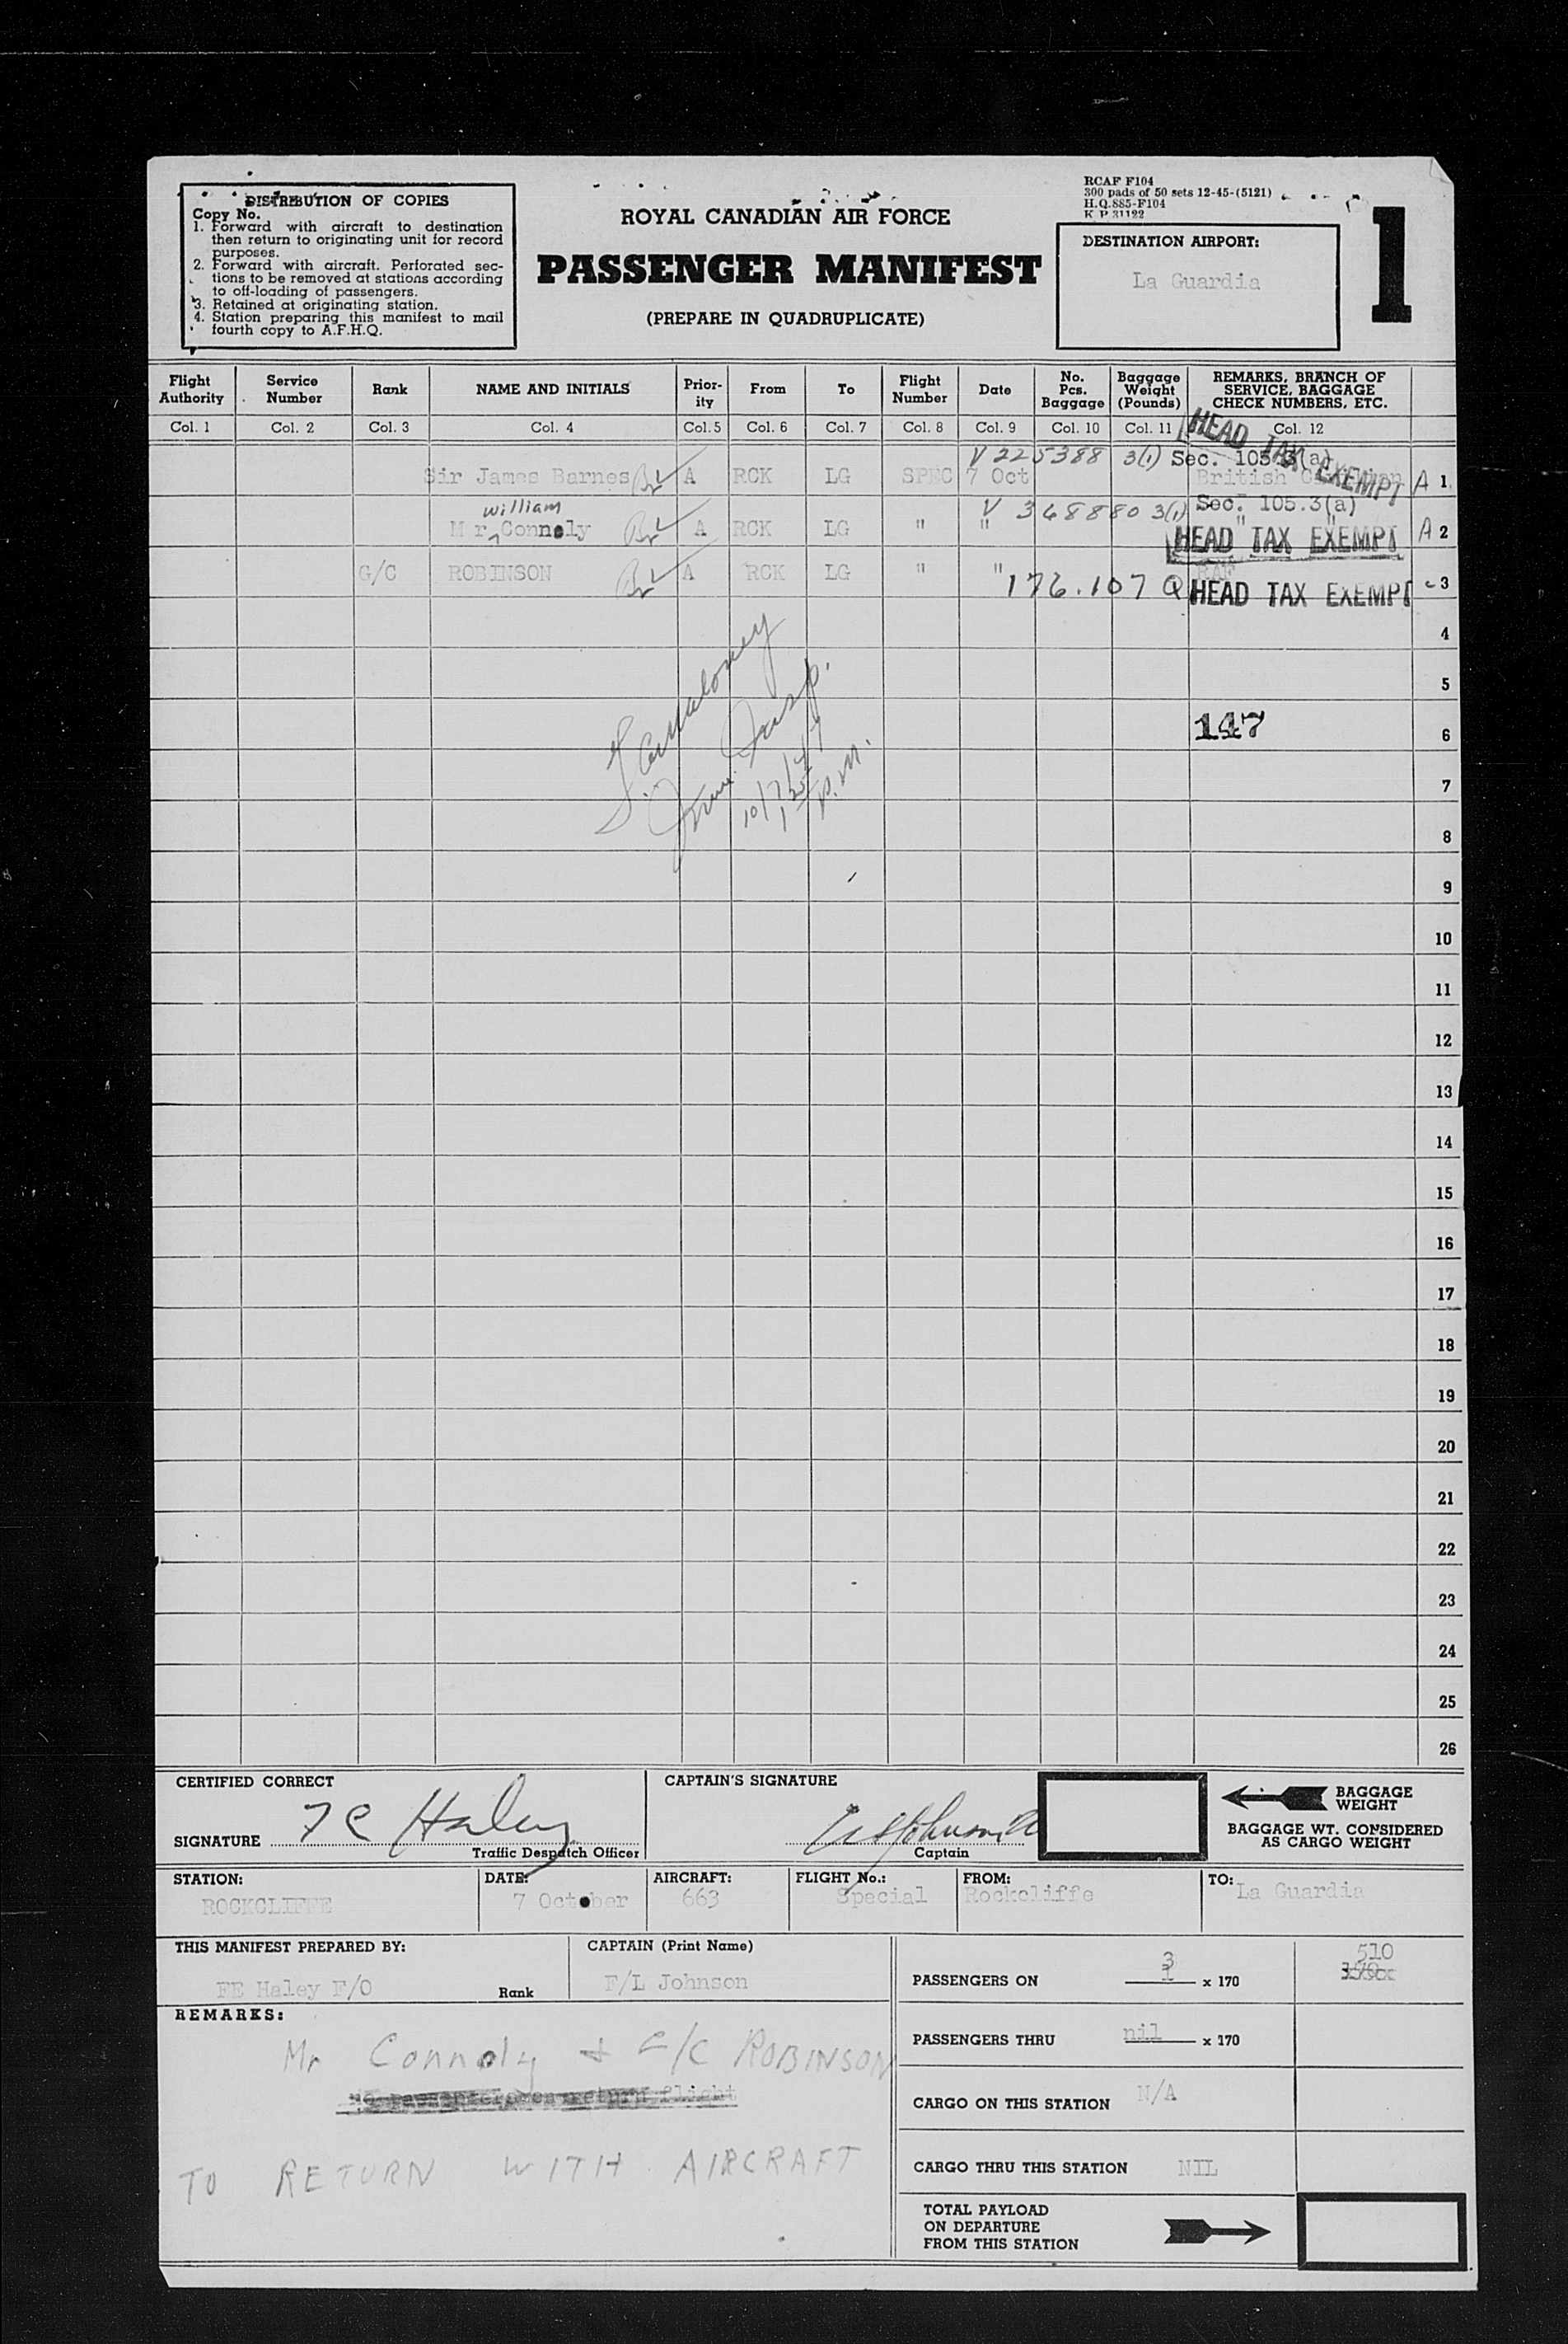 DISTRIBUTION OF COPIES
Copy No.
1. Forward with aircraft to destination
then return to originating unit for record
purposes.
2. Forward with aircraft. Perforated sec-
tions to be removed at stations according
to off-loading of passengers.
3. Retained at originating station.
4. Station preparing this manifest to mail
fourth copy to A.F.H.Q.
ROYAL CANADIAN AIR FORCE
PASSENGER MANIFEST
(PREPARE IN QUADRUPLICATE)
RCAF F104
300 pads of 50 sets 12-45-(5121)
H.Q.885-F104
K P 31122
DESTINATION AIRPORT:
La Guardia
1
Flight Authority Service Number Rank NAME AND INITIALS Prior-ity From To Flight Number Date No. Pcs. Baggage Baggage Weight (Pounds) REMARKS, BRANCH OF SERVICE, BAGGAGE CHECK NUMBERS, ETC.
Col. 1 Col. 2 Col. 3 Col. 4 Col. 5 Col. 6 Col. 7 Col. 8 Col. 9 Col. 10 Col. 11 Col. 12
HEAD TAX EXEMPT
V 225388 3(1) Sec. 105.3(a)
Sir James Barnes A RCK LG SPEC 7 Oct British A 1
william V 348880 3(1) Sec. 105.3(a)
Mr Connoly A RCK LG " " " " A 2
HEAD TAX EXEMPT
G/C ROBINSON A RCK LG " " RAF 3
176.107 Q HEAD TAX EXEMPT
4
5
147
6
7
8
10/7/47
p.m.
9
10
11
12
13
14
15
16
17
18
19
20
21
22
23
24
25
26
CERTIFIED CORRECT
SIGNATURE F E Haley
Traffic Despatch Officer
CAPTAIN'S SIGNATURE
Johnson
Captain
BAGGAGE
WEIGHT
BAGGAGE WT. CONSIDERED
AS CARGO WEIGHT
STATION: DATE: AIRCRAFT: FLIGHT No.: FROM: TO:
ROCKCLIFFE 7 October 663 Special Rockcliffe La Guardia
THIS MANIFEST PREPARED BY:
FE Haley F/O Rank
CAPTAIN (Print Name)
F/L Johnson
PASSENGERS ON 3 1 x 170 510
PASSENGERS THRU nil x 170
CARGO ON THIS STATION N/A
CARGO THRU THIS STATION NIL
TOTAL PAYLOAD
ON DEPARTURE
FROM THIS STATION
REMARKS:
Mr Connoly + G/C ROBINSON
No passengers on return flight
TO RETURN WITH AIRCRAFT